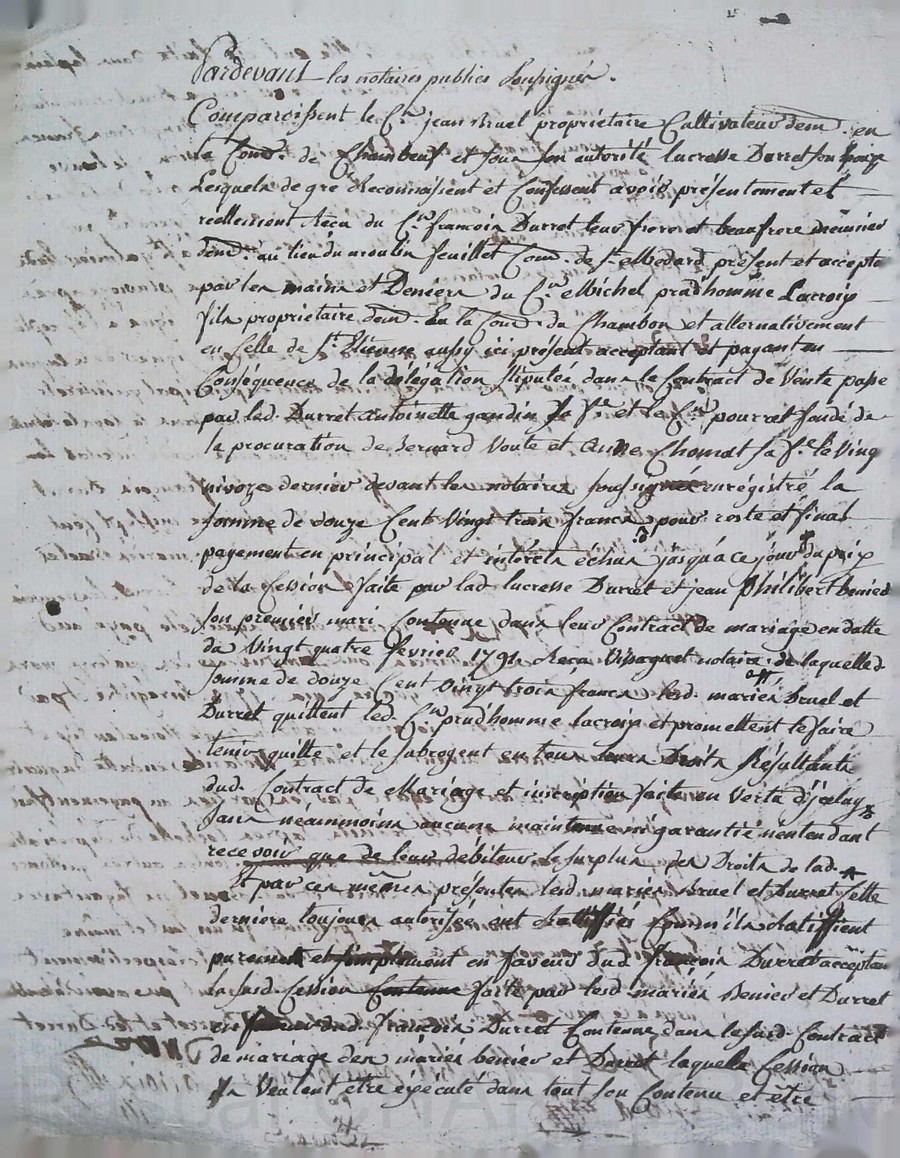 Pardevant les notaires publics soussignés.
Comparoissent le C.en jean bruel propriétaire Cultivateur dem.t en
la Com.e de Chambeuf et sous son autorité lucresse Durret son
Lesquels de gré Reconnoissent et Confessent avoir présentement et
reellement Recu du C.en francois Durret leur frere et beaufrere meunier
dem.t au lieu du moulin feuillet Com.e de s.t Medard présent et accepte
par les mains et Deniers du C.en Michel prudhomme Lacroix
fils propriétaire dem.t En la Com.e du Chambon et alternativement
en Celle de s.t Etienne aussy ici présent acceptant et payant en
Conséquence de la délégation stipulée dans le Contract de Vente passé
par led. Durret antoinette gandin Sa f.e et le C.en pourrat fondé de
la procuration de Bernard Voute et Anne Chomat sa f.e le Ving
nivoze dernier devant les notaires soussignés enrégistré la
somme de douze Cent Vingt trois francs pour reste et final
payement en principal et intérets échus jusqu'a ce jour du prix
de la Cession faite par lad. lucresse Durret et jean philibert Benier
son premier mari Contenue dans leur Contract de mariage en datte
du Vingt quatre fevrier 1791 Recu notaire, de laquelle d.
somme de douze Cent Vingt trois francs lesd. mariés bruel et
Durret quittent led. C.en prudhomme lacroix et promettent le faire
tenir quitte et le subrogent en tous leurs Droits Résultants
dud. Contract de Mariage et inscription faite en Vertu d'jceluy
sans néanmoins aucune maintenue ni garantie n'entendant
recevoir que de leur débiteur le surplus des Droits de lad.
Et par ces mêmes présentes lesd. mariés bruel et Durret Cette
derniere toujours autorisée ont Ratiffiés Comme ils Ratiffient
purement et simplement en faveur dud. françois Durret acceptant
la susd. Cession Contenue faite par lesd. mariés Benier et Durret
en faveur dud. francois Durret Contenue dans le susd. Contract
de mariage des mariés benier et Durret laquelle Cession
ils Veulent etre éxécuté dans tout son Contenu et être